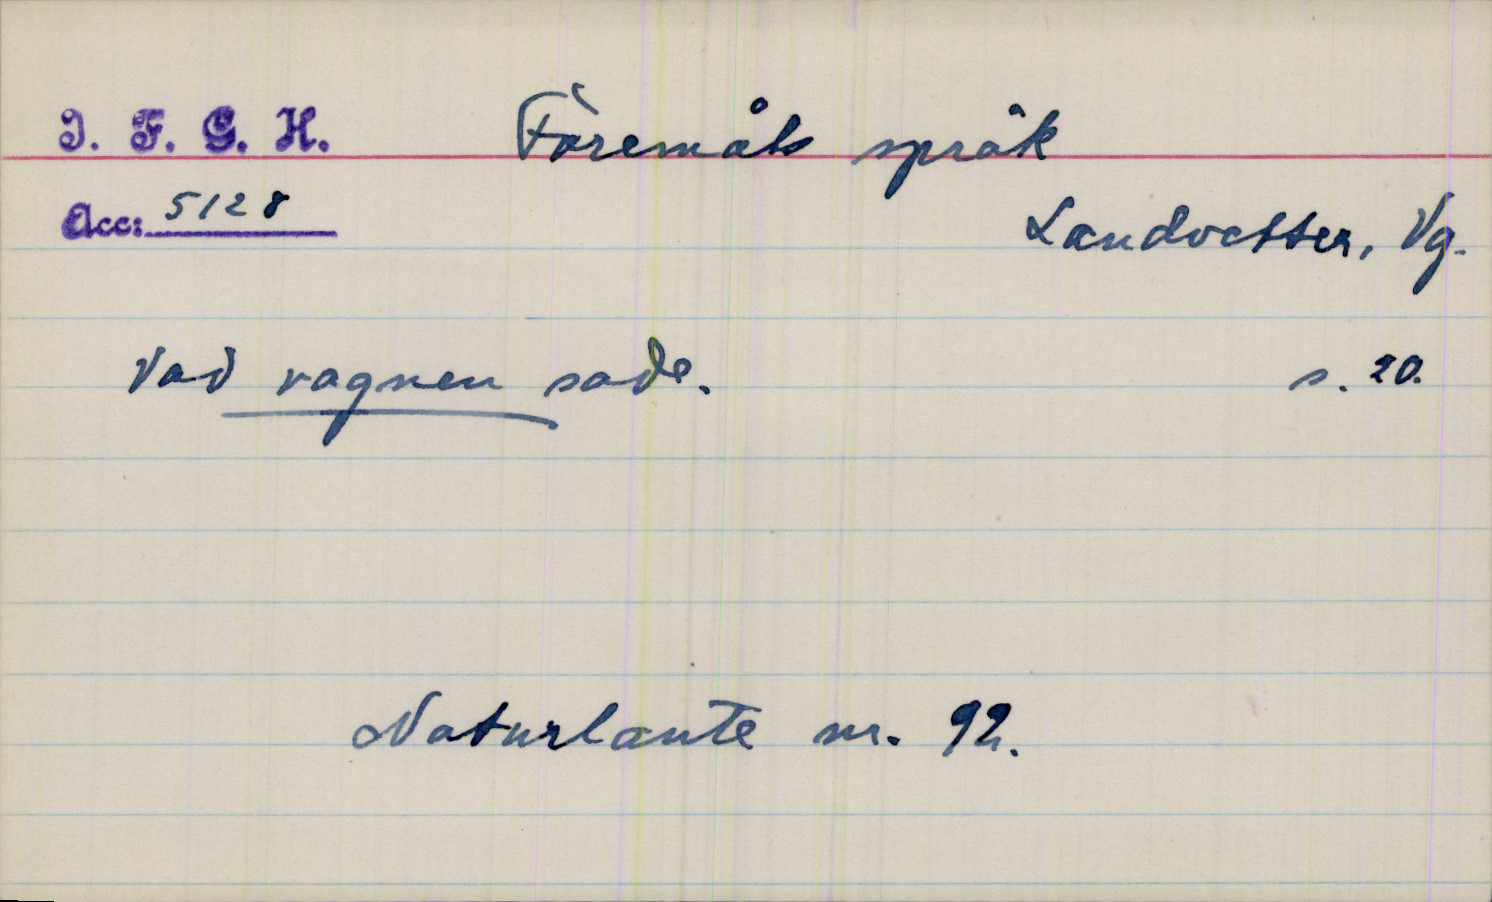 I. F. G. H.
Föremåls språk
Acc: 5128
Landvetter, Vg.
Vad vagnen sade.
s. 20.
Naturlaute nr. 92.